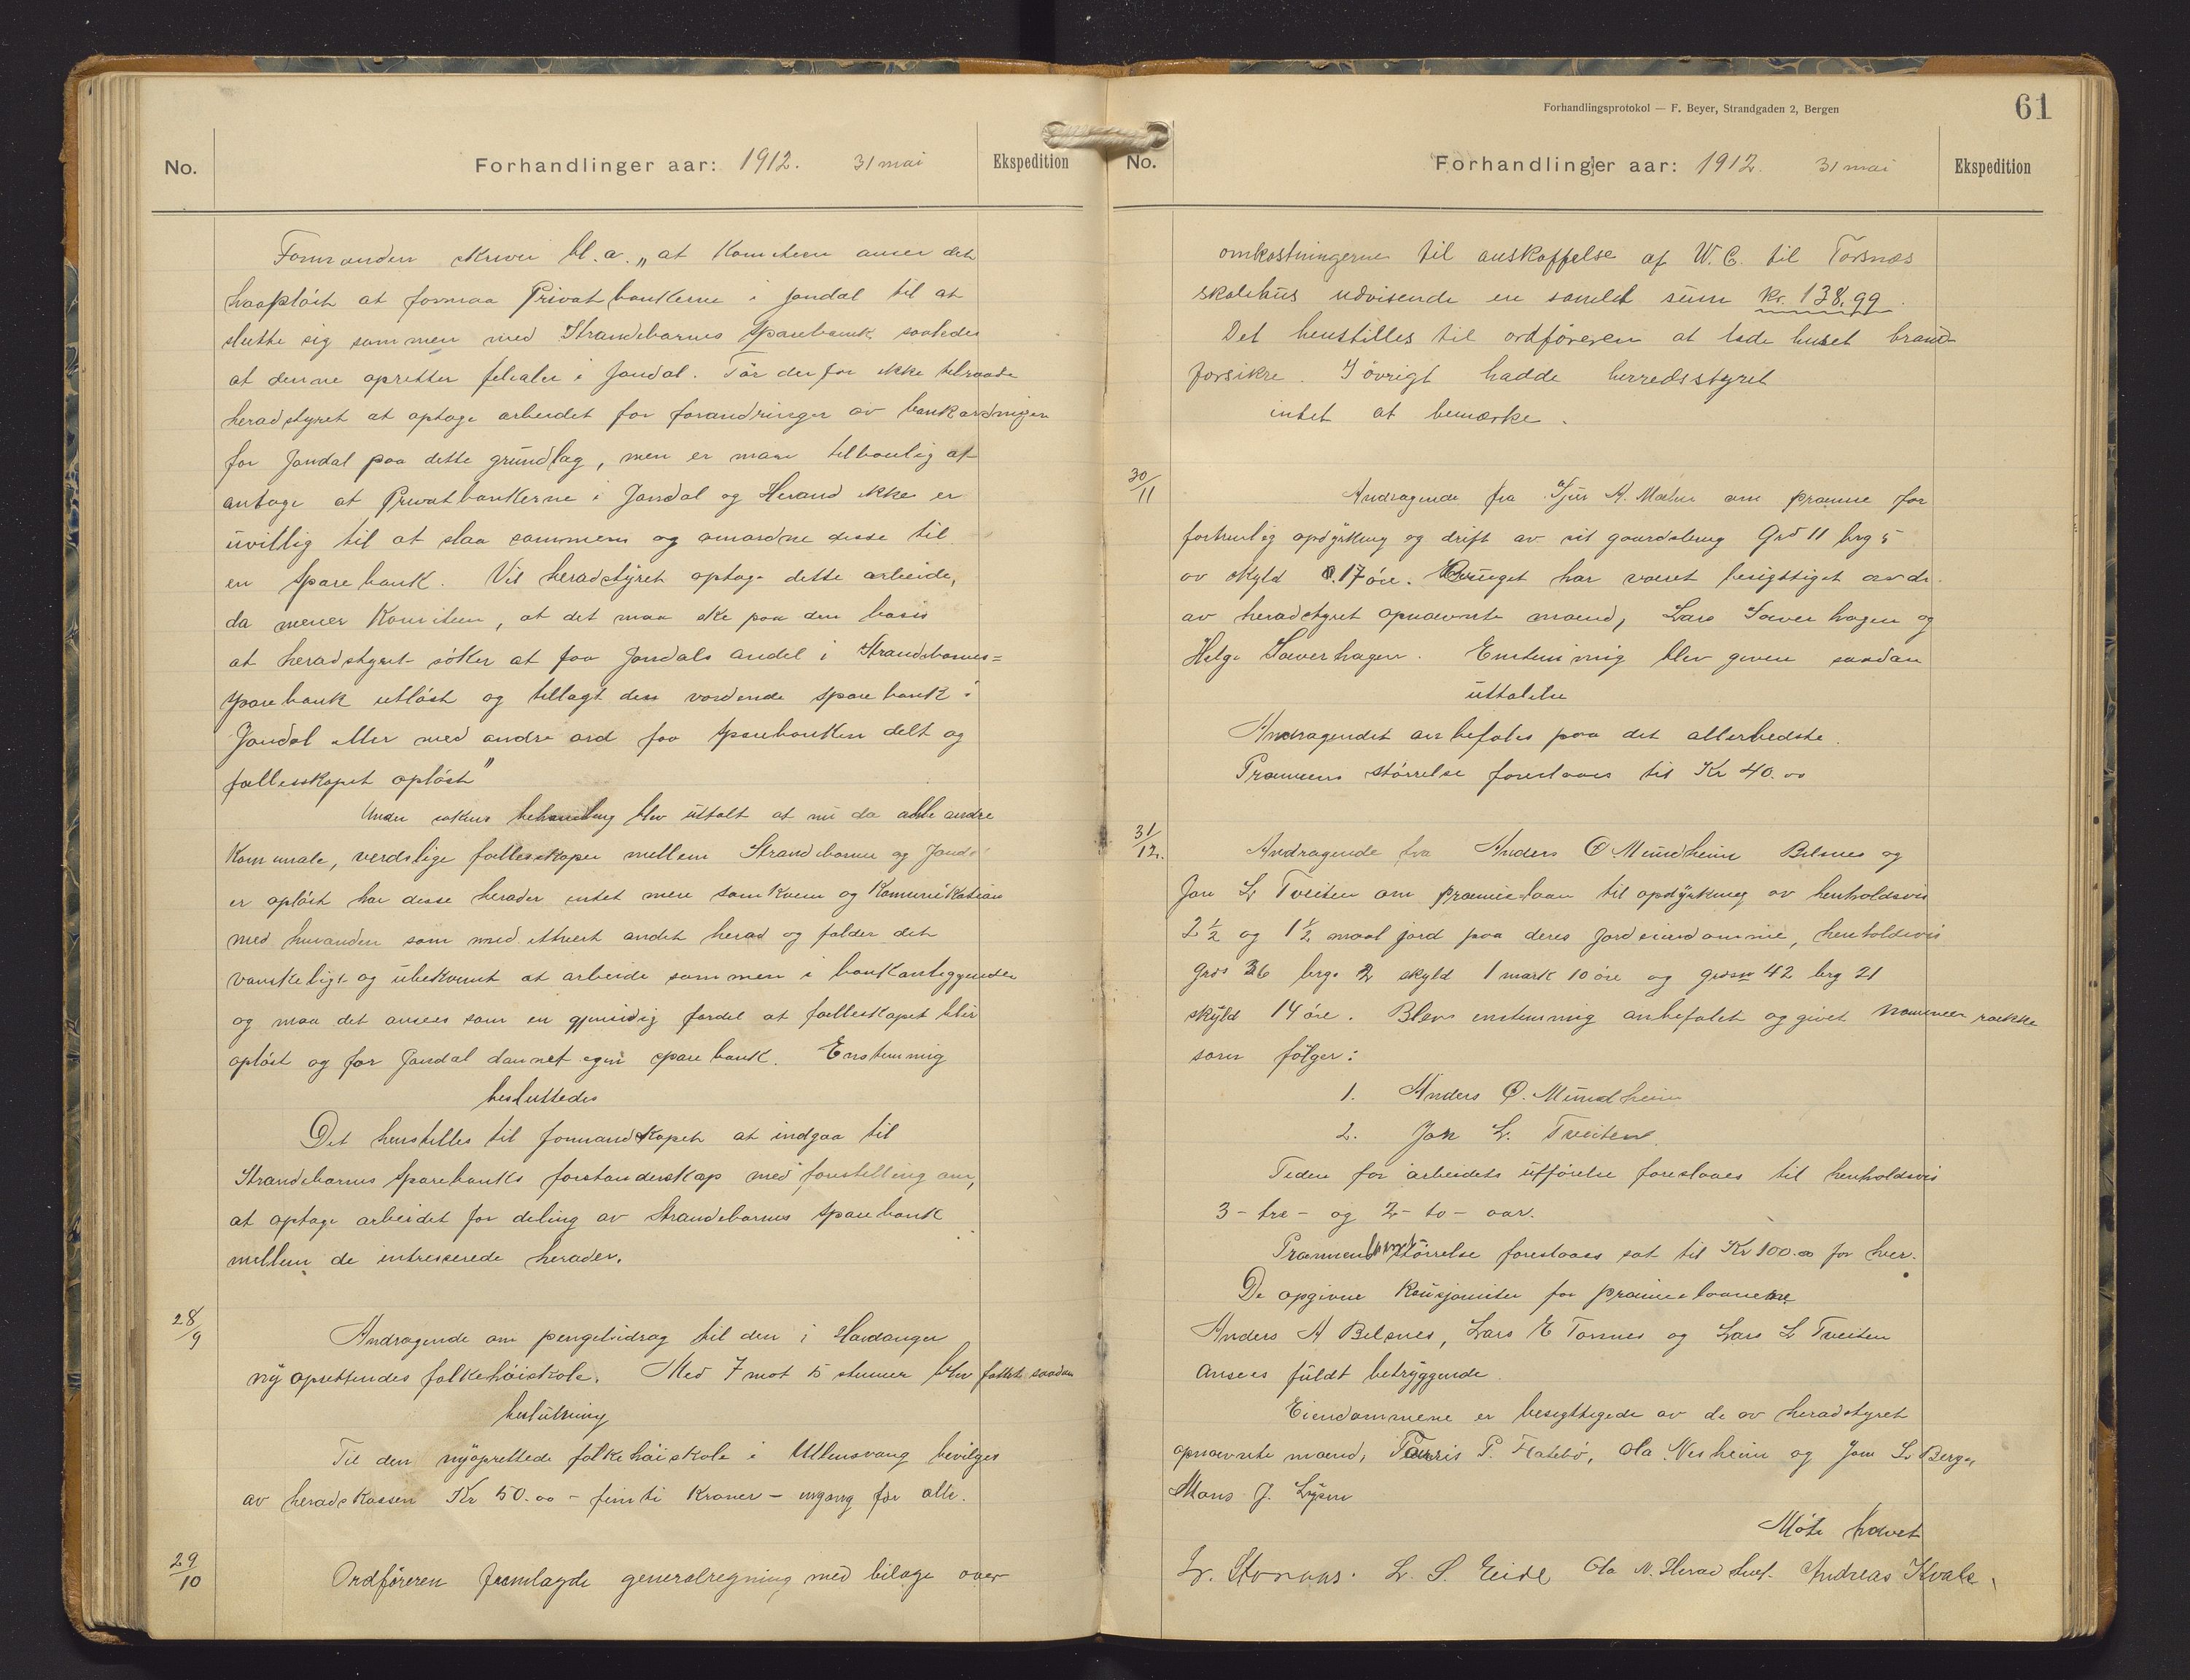 No. Forhandlinger aar: 1912. 31 mai Ekspedition
Formanden skriver bl. a. „at Komiteen anser det
haapløst at formaa Privatbankerne i Jondal til at
slutte sig sammen med Strandebarms Sparebank saaledes
at denne opretter filialer i Jondal. Tør derfor ikke tilraade
heradstyret at optage arbeidet for forandringer av bankordningen
for Jondal paa dette grundlag, men er man tilbøielig at
antage at Privatbankerne i Jondal og Herand ikke er
uvillig til at slaa sammen og omordne disse til
en Sparebank. Vil heradstyret optage dette arbeide,
da mener Komiteen, at det maa ske paa den basis
at heradstyret søker at faa Jondals andel i Strandebarms=
sparebank utløst og tillagt den vordende sparebank i
Jondal eller med andre ord faa sparebanken delt og
fællesskapet opløst"
Under sakens behandling blev uttalt at nu da alle andre
Kommunale, verdslige fællesskaper mellem Strandebarm og Jondal
er opløst har disse herader intet mere samkvem og Komunikation
med hinanden som med ethvert andet herad og falder det
vanskeligt og ubekvemt at arbeide sammen i bankanliggender
og maa det ansees som en gjensidig fordel at fælleskapet blir
opløst og for Jondal dannet egen sparebank. Enstemmig
besluttedes
Det henstilles til formandskapet at indgaa til
Strandebarms Sparebanks forstanderskap med forestilling om,
at optage arbeidet for deling av Strandebarms Sparebank
mellem de intresserede herader.
28/9 Andragende om pengebidrag til den i Hardanger
ny oprettendes folkehøiskole. Med 7 mot 5 stemmer blev fattet saadan
beslutning
Til den nyoprettede folkehøiskole i Ullensvang bevilges
av heradskassen Kr 50.00 - femti Kroner - engang for alle.
29/10 Ordføreren fremlagde generalregning med bilage over
Forhandlingsprotokol — F. Beyer, Strandgaden 2, Bergen
61
No. Forhandlinger aar: 1912. 31 mai Ekspedition
omkostningerne til anskaffelse af W.C. til Torsnæs
skolehus udvisende en samlet sum kr. 138,99.
Det henstilles til ordføreren at lade huset brand-
forsikre. I øvrigt hadde herredsstyret
intet at bemærke.
30/11 Andragende fra Sjur A. Mæhle om præmie for
fortrinlig opdyrking og drift av sit gaardsbrug Gno 11 brg 5
av skyld 0.17 øre. Bruget har været besigtiget av de
av heradstyret opnævnte mænd, Lars Sæverhagen og
Helge Sæverhagen. Enstemmig blev given saadan
uttalelse
Andragendet anbefales paa det allerbedste.
Præmiens størrelse foreslaaes til Kr 40.00
31/12. Andragende fra Anders O Mundheim Belsnes og
Jon L Tveiten om præmielaan til opdyrkning av henholdsvis
2 ½ og 1 ½ maal jord paa deres Jordeiendomme, henholdsvis
Gno 36 brg. 2 skyld 1 mark 10 øre og gno 42 brg 21
skyld 14 øre. Blev enstemmig anbefalet og givet nummer række
som følger:
1. Anders O. Mundheim
2. Jon L. Tveiten.
Tiden for arbeidets utførelse foreslaaes til henholdsvis
3 - tre - og 2 - to - aar.
Præmielaanets størrelse foreslaaes sat til Kr 100.00 for hver.
De opgivne Kausjonister for præmielaanene
Anders A Belsnes, Lars E Tornes og Lars L Tveiten
ansees fuldt betryggende.
Eiendommene er besigttigede av de av heradstyret
opnævnte mænd, Torris P. Flatebø, Ola Nesheim og Jon L. Berge,
Mons J. Lysen
Møte hævet
L. S. Eide Ola N. Herad Andreas Kvale.